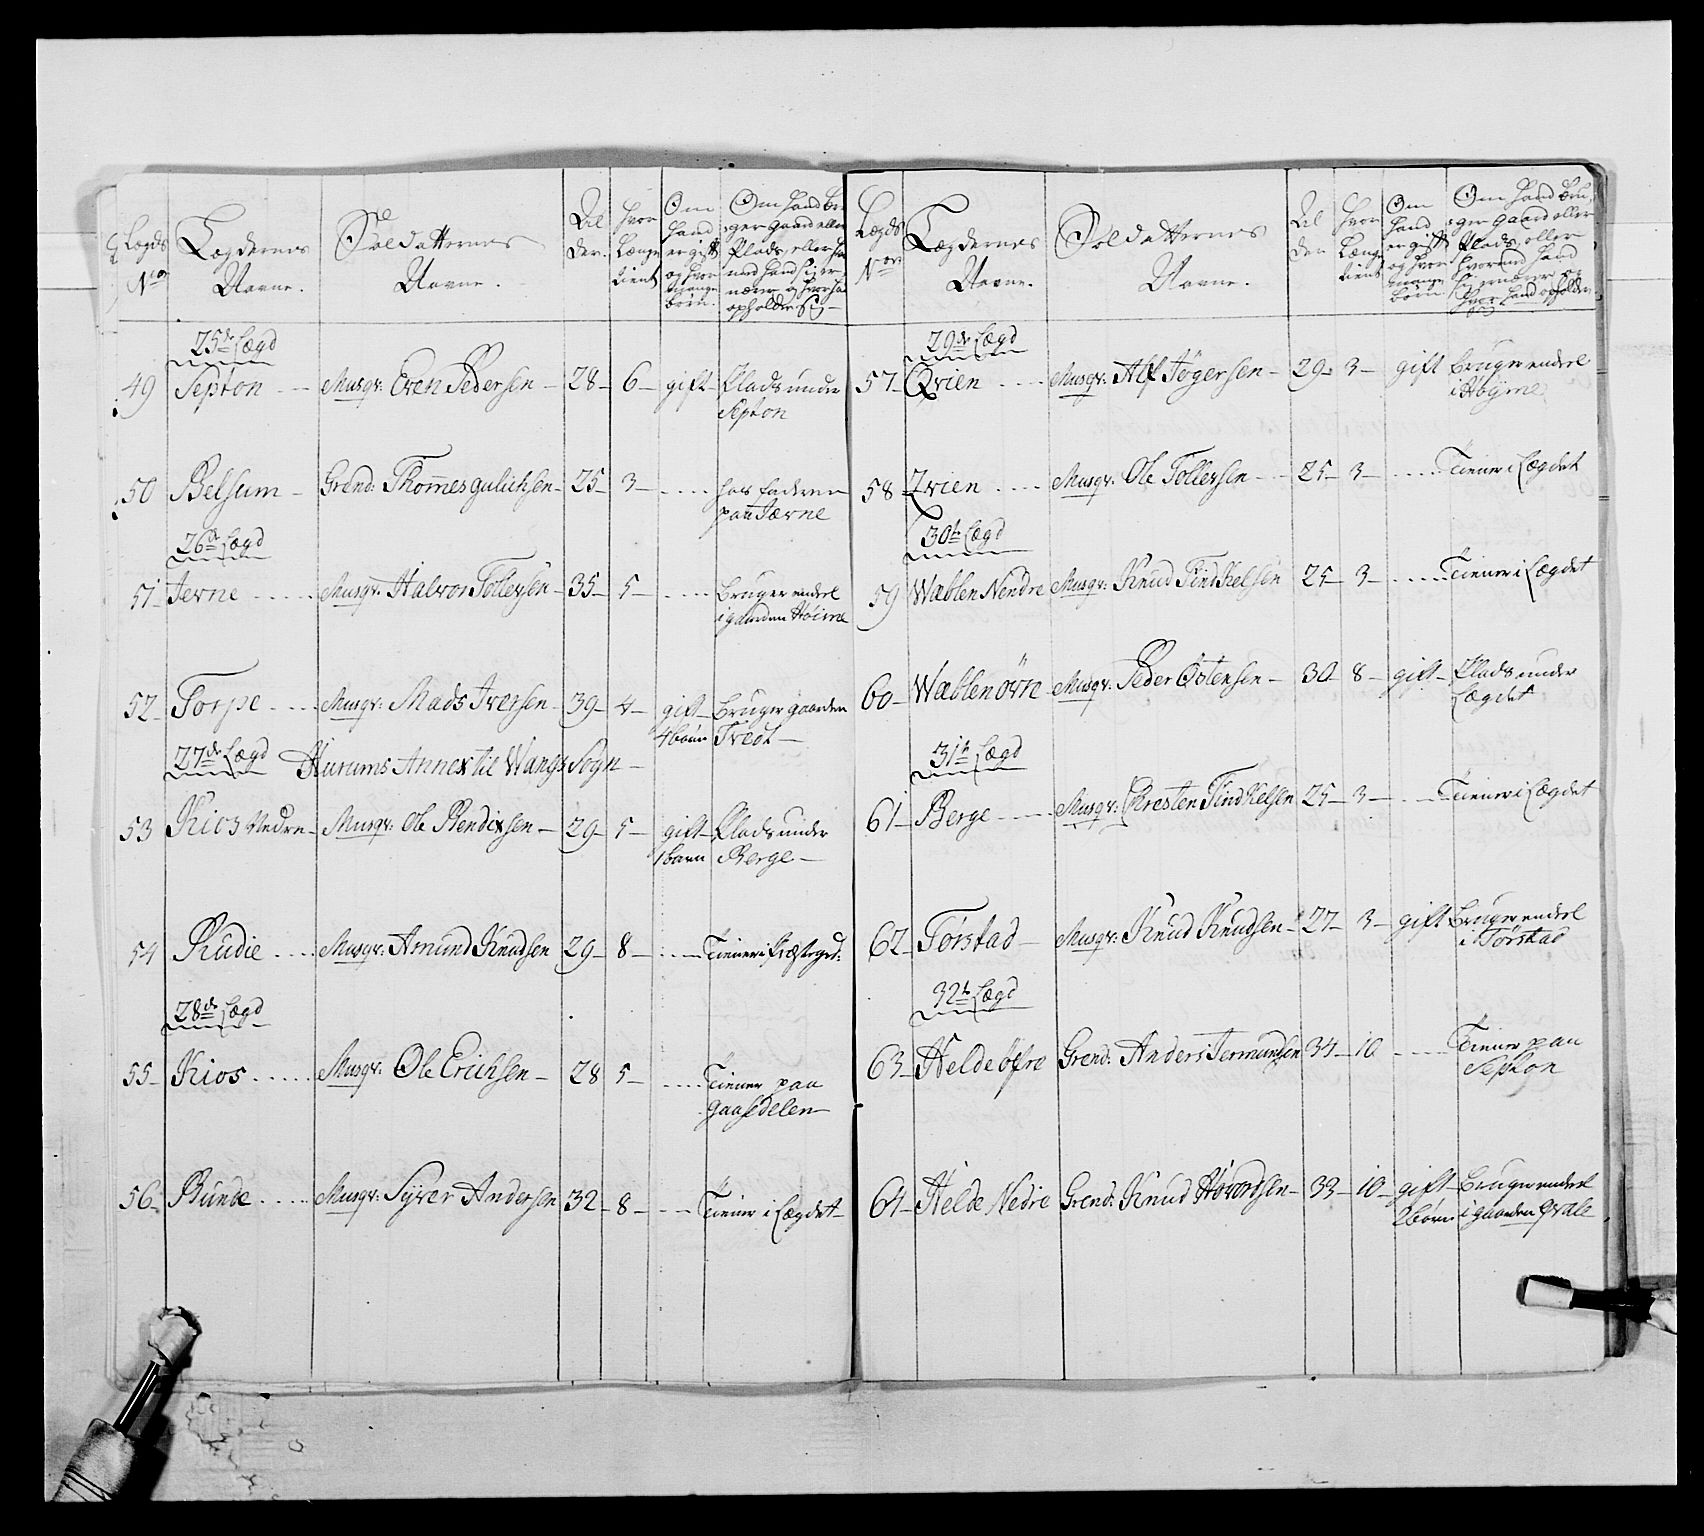 Lægds Nor
Lægdernes Navne.
Soldatternes Navne.
Alder.
Hvor Længe tient
Om Hand er gift og hvor mange børn.
Om Hand bruger gaard eller Plads, eller
opholder sig
25de Lægd
49 Septon - Musqr: Even Pedersen - 28 - 6 - gift - Plads under
Septon
50 Belsum - Grend: Thommes gulichsen - 25 - 3 - .... hos faderen
paa Jærne
26de Lægd
51 - Jerne ..... Musqr: Halvor Tollefsen - 35 - 5 - .... bruger endel
i gaarden Høime
52 - Torpe .... Musqr: Mads Iversen - 39 - 4 - gift - bruger gaarden
4 børn Tvedt -
27de Lægd Hurums Annex til Wangs Sogn -
53 Kios Nedre - Musqr: Ole Bendixsen - 29 - 5 - gift - Plads under
1 barn Berge -
54 Rudie .... Musqr: Amund Knudsen 29 - 8 - .... Tiener i Præstegd:
28de Lægd
55 - Kios ..... Musqr: Ole Erichsen - 28 5 - .... Tiener paa
56 - Bunde .... Musqr: Syver Andersen 32 - 8 - ... Tiener i Lægdet -
Lægds Nor
Lægdernes Navne.
Soldatternes Navne.
Alder
Hvor Længe tient
Om Hand er gift og hvor mange børn.
Om Hand bruger gaard eller Plads, eller hvormed Hand sig ernærer og hvor Hand opholder sig
29de Lægd
57 - Qvien .... Musqr: Alf Jøgersen - 29 - 3 - gift bruger endel
i Høyme
58 - Qvien .... Musqr: Ole Tollefsen - 25 - 3 - .... Tiener i Lægdet
30te Lægd
59 Wæblen Nendre Musqr: Knud Findkelsen 25 - 3 - .... Tiener i Lægdet
60 - Wæblen øvre Musqr: Peder Østensen - 30 - 8 - gift - Plads under
Lægdet
31te Lægd
61 - Berge .... Musqr: Chresten Findkelsen 25 - 3 - ... Tiener i Lægdet
62 - Tørstad - Musqr: Knud Knudsen - 27 - 3 - gift bruger endel
i Tørstad
32te Lægd
63 - Helde øfre Grend: Anders Jermundsen 34 - 10 .... Tiener paa
Septon
64 - Helde Nedre Grend: Knud Hovordsen - 33 - 10 - gift - bruger endel
2 børn i gaarden Qvale